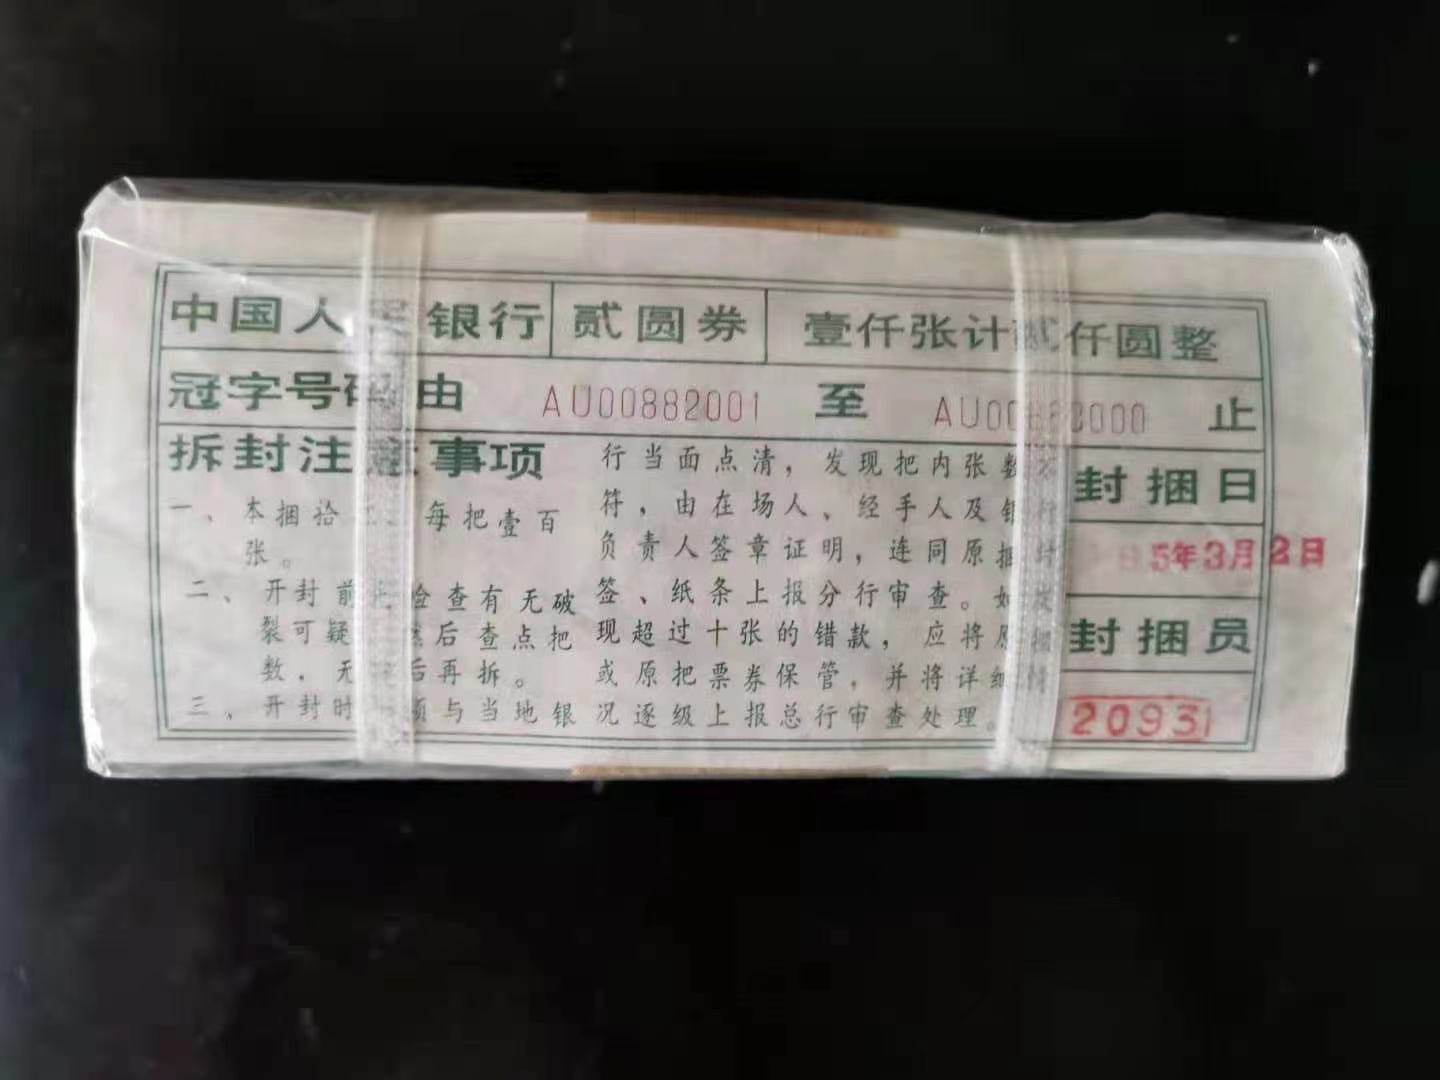 中国人民银行 贰圆券 壹仟张计贰仟圆整
冠字号码由 AU00882001 至 AU00883000 止
拆封注意事项
一、本捆拾 每把壹百
张。
二、开封前 检查有无破
裂可疑 然后查点把
数，无 后再拆。
三、开封时 须与当地银
行当面点清，发现把内张数不
符，由在场人、经手人及银行
负责人签章证明，连同原捆封
签、纸条上报分行审查。如发
现超过十张的错款，应将原捆
或原把票券保管，并将详细情
况逐级上报总行审查处理。
封捆日
5年3月2日
封捆员
20931